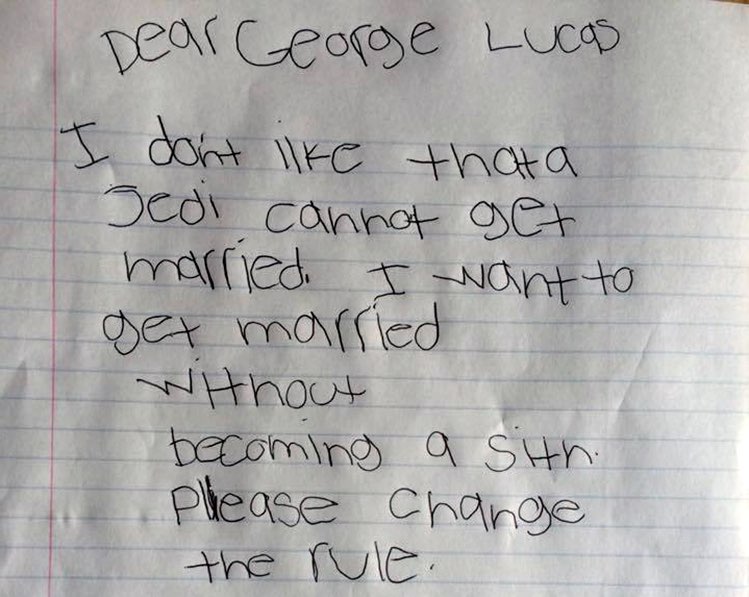 Dear George Lucas
I don't like that a
Jedi cannot get
married. I want to
get married
without
becoming a Sith.
Please change
the rule.